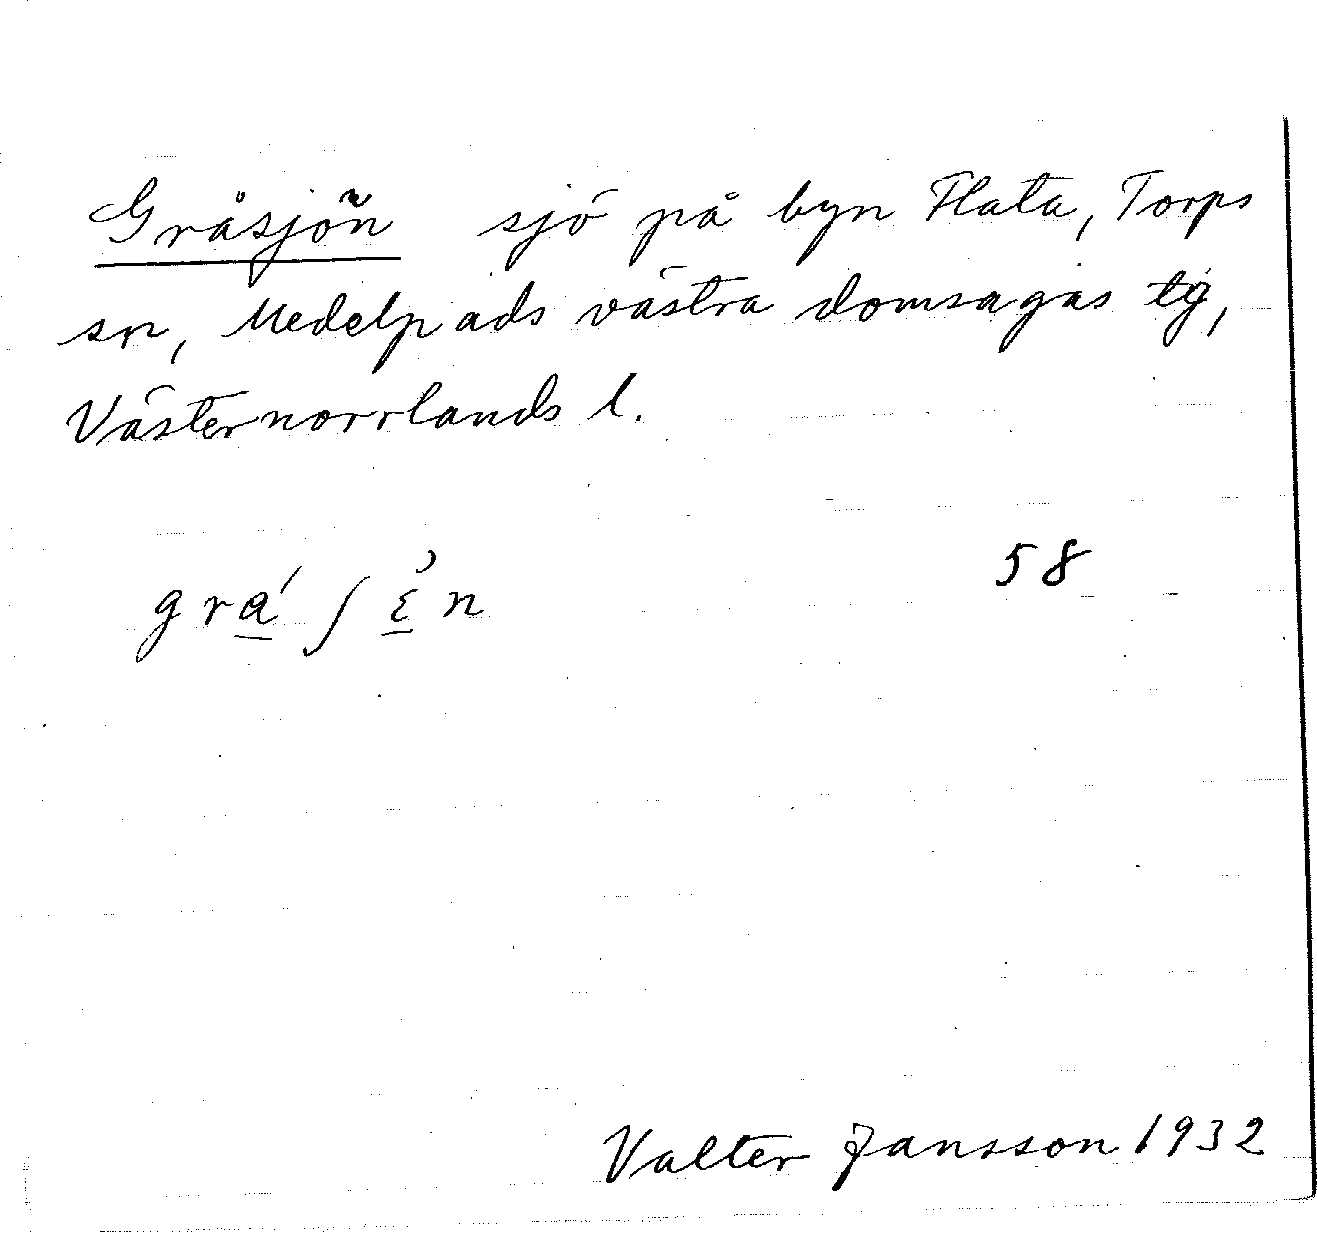 Gråsjön sjö på byn Flata, Torps
sn, Medelpads västra domsagas tg,
Västernorrlands l.
58
Valter Jansson 1932